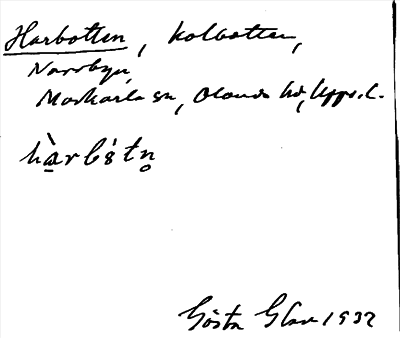 Harbotten, kolbotten,
Norrbyn,
Morkarla sn, Olands hd, Upps. l.
hàrbòtn̥
Gösta Glav 1932